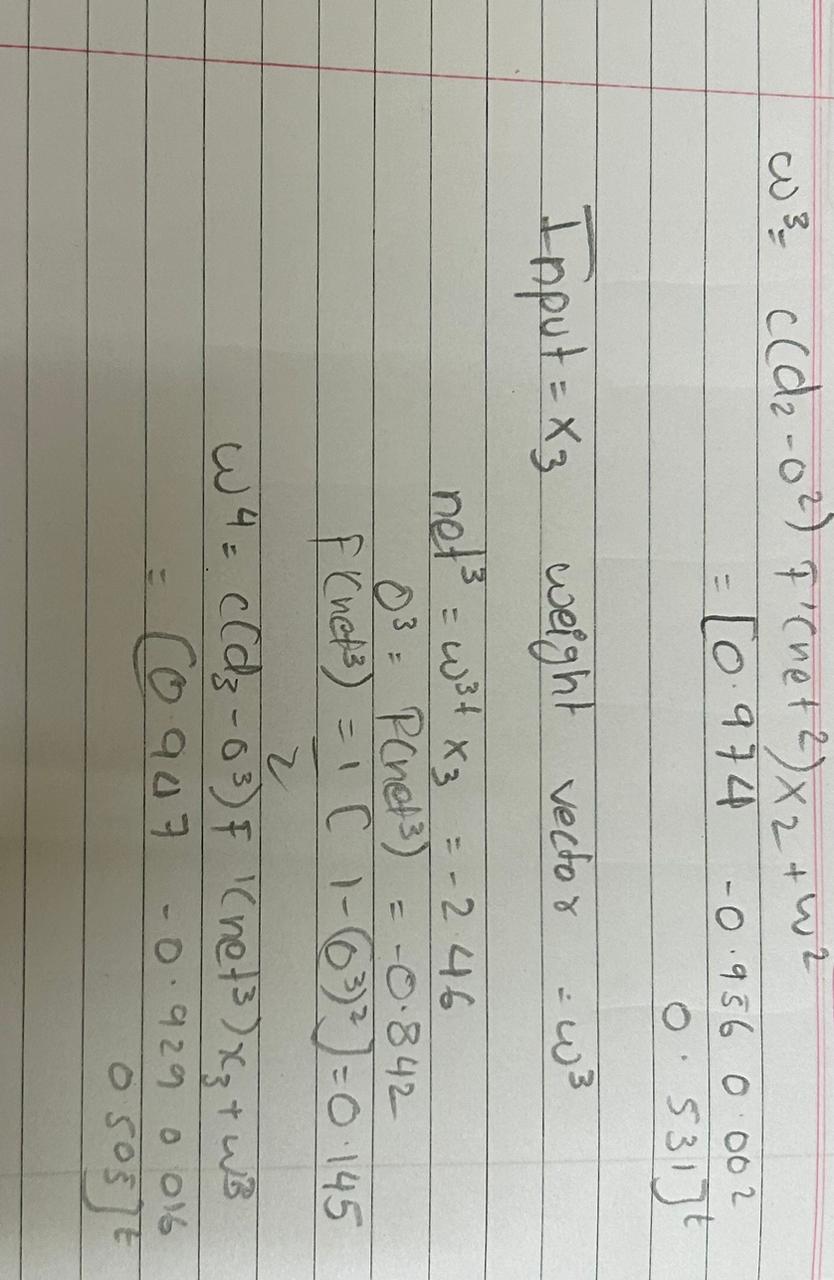 w³= c(d₂-o²) F'(net²)x₂+w²
= [0.974 -0.956 0.002
0.531]ᵗ
Input = x₃ weight vector = w³
net³ = w³ᵗ x₃ = -2.46
O³ = F(net³) = -0.842
F'(net³) = 1/2 [1-(O³)²] = 0.145
w⁴ = c(d₃-o³)F'(net³)x₃+w³
= [0.947 -0.929 0.016
0.505]ᵗ